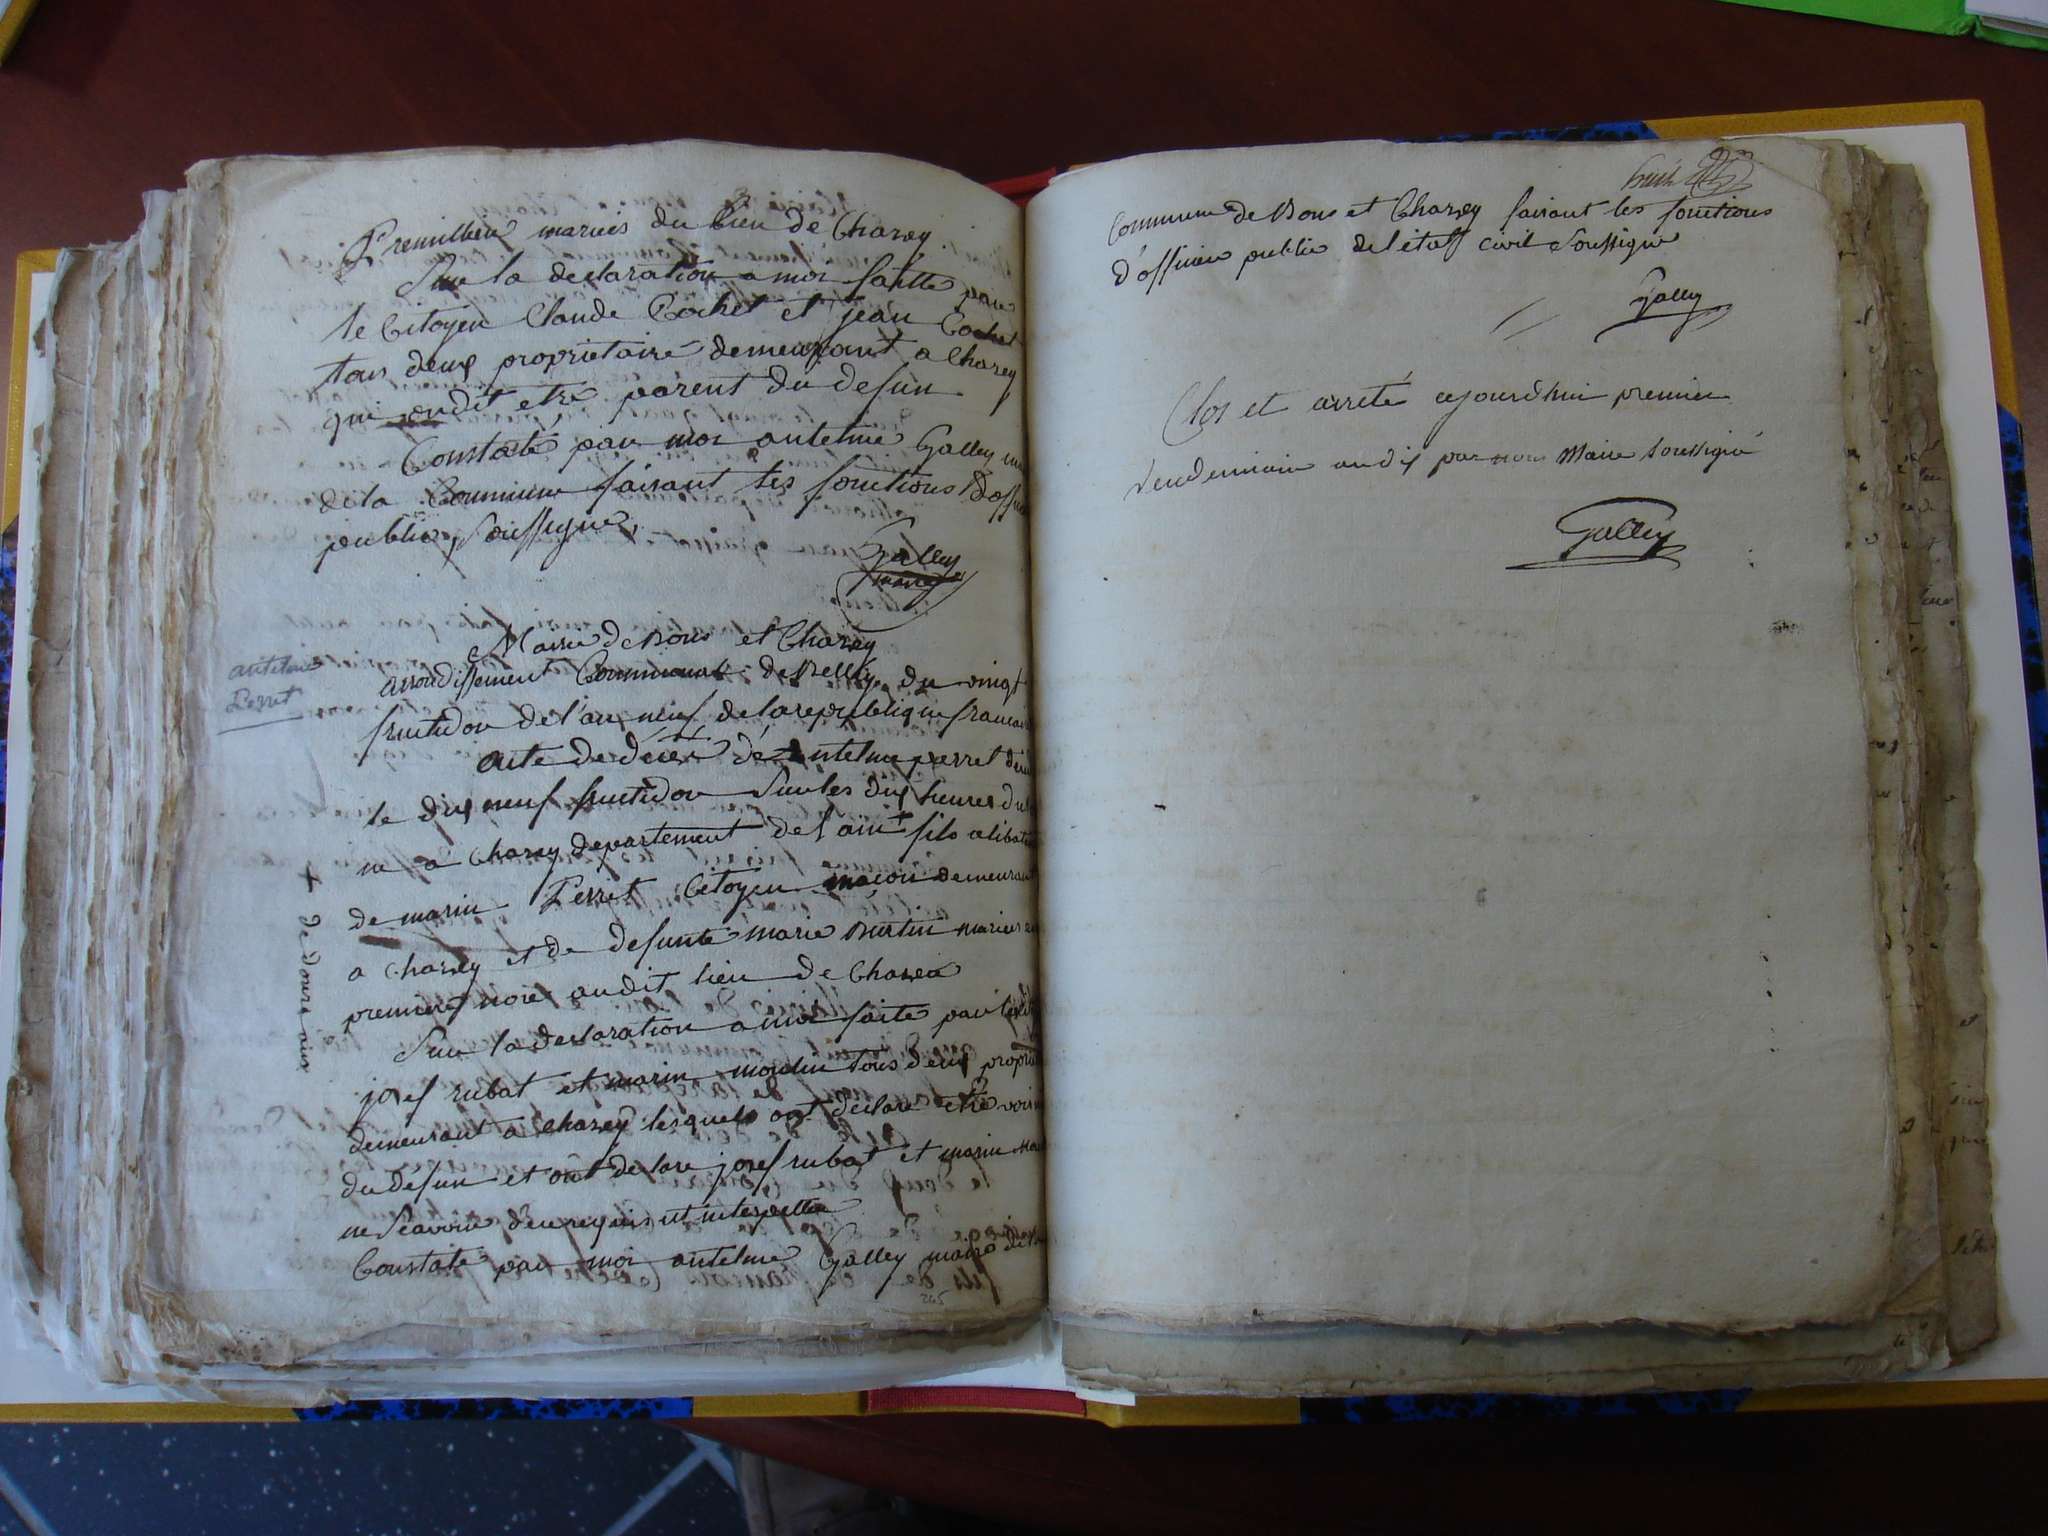 Premillieu mariés du lieu de Charey.
Sur la declaration a moi faitte par
le Citoyen Claude Cochet et jean Cochet
tous deux proprietaire demeurant a Charey
qui ondit etre parent du defun
Constaté par moi antelme Galley
de la Commune faisant les fonctions
public Soussigné,
Galley
maire
antelme
Perret
Mairie de Bons et Charey
arrondissement Communal de Belley du vingt
fruttidor de l'an neuf de la republique
acte de décès de antelme perret
le dix neuf fruttidor Sur les dix heures du
ne a Charey departement de l'ain + fils
de marin Perret Citoyen maçon demeurant
a Charey et de defunte marie Burtin
premiere noces audit lieu de Charea
+ de douze ans
Sur la declaration a moi faite par
josef rubat et marin moulin tous deux
demeurant a charey lesquels ont declare etre
du defun et ont declare josef rubat et marin
ne Scavoir d'en requis et interpelle
Constate par moi antelme Galley maire
245
huit
Commune de Bons et Charey faisant les fonctions
d'officier public de l'état civil Soussigné
Galley
Clos et arreté cejourdhui premier
Vendemiaire an dix par nous Maire soussigné
Galley